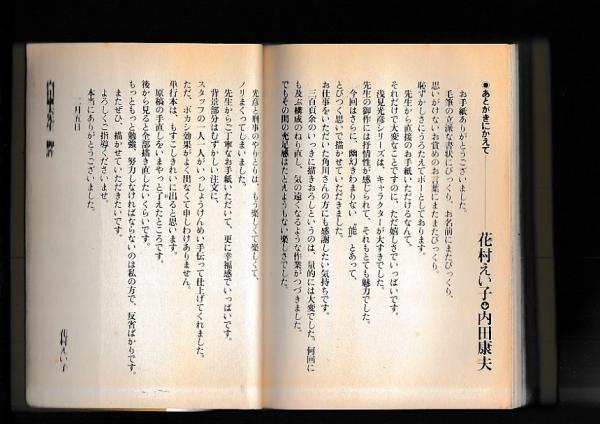 ●あとがきにかえて
花村えい子✚内田康夫
お手紙ありがとうございました。
毛筆の立派な書状にびっくり、お名前にまたびっくり、
思いがけないお賞めのお言葉にまたまたびっくり。
恥ずかしさにうろたえてボーとしております。
先生から直接のお手紙いただけるなんて、
それだけで大変なことですのに、ただ嬉しさでいっぱいです。
浅見光彦シリーズは、キャラクターが大すきでした。
先生の御作には抒情性が感じられて、それもとても魅力でした。
今回はさらに、幽幻きわまりない〝能〟とあって、
とびつく思いで描かせていただきました。
お仕事をいただいた角川さんの方にも感謝したい気持です。
三百頁余のいっきに描きおろしというのは、量的には大変でした。何回に
も及ぶ構成のねり直し、気の遠くなるような作業がつづきました。
でもその間の充足感はたとえようもない楽しさでした。
光彦と刑事のやりとりは、もう楽しくて楽しくて、
ノリまくってしまいました。
先生からご丁寧なお手紙いただいて、更に幸福感でいっぱいです。
背景部分はむずかしい注文に、
スタッフの一人一人がいっしょうけんめい手伝って仕上げてくれました。
ただ、ボカシ効果がよく出なくて申しわけありません。
単行本は、もすこしきれいに出ると思います。
原稿の手直しをいまやっと了えたところです。
後から見ると全部描き直したいくらいです。
もっともっと勉強、努力しなければならないのは私の方で、反省ばかりです。
またぜひ、描かせていただきたいです。
よろしくご指導くださいませ。
本当にありがとうございました。
二月五日
花村えい子
内田康夫先生 御許